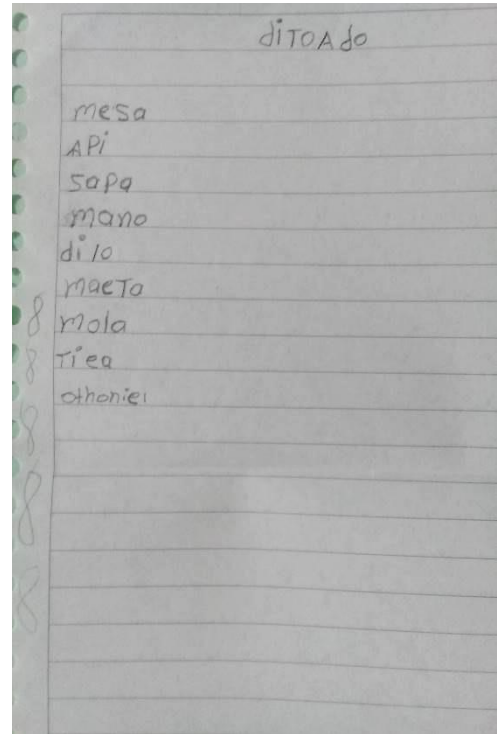 diTOAdo
mesa
APi
sapa
mano
dilo
maeTa
mola
Tiea
othoniel
8
8
8
8
8